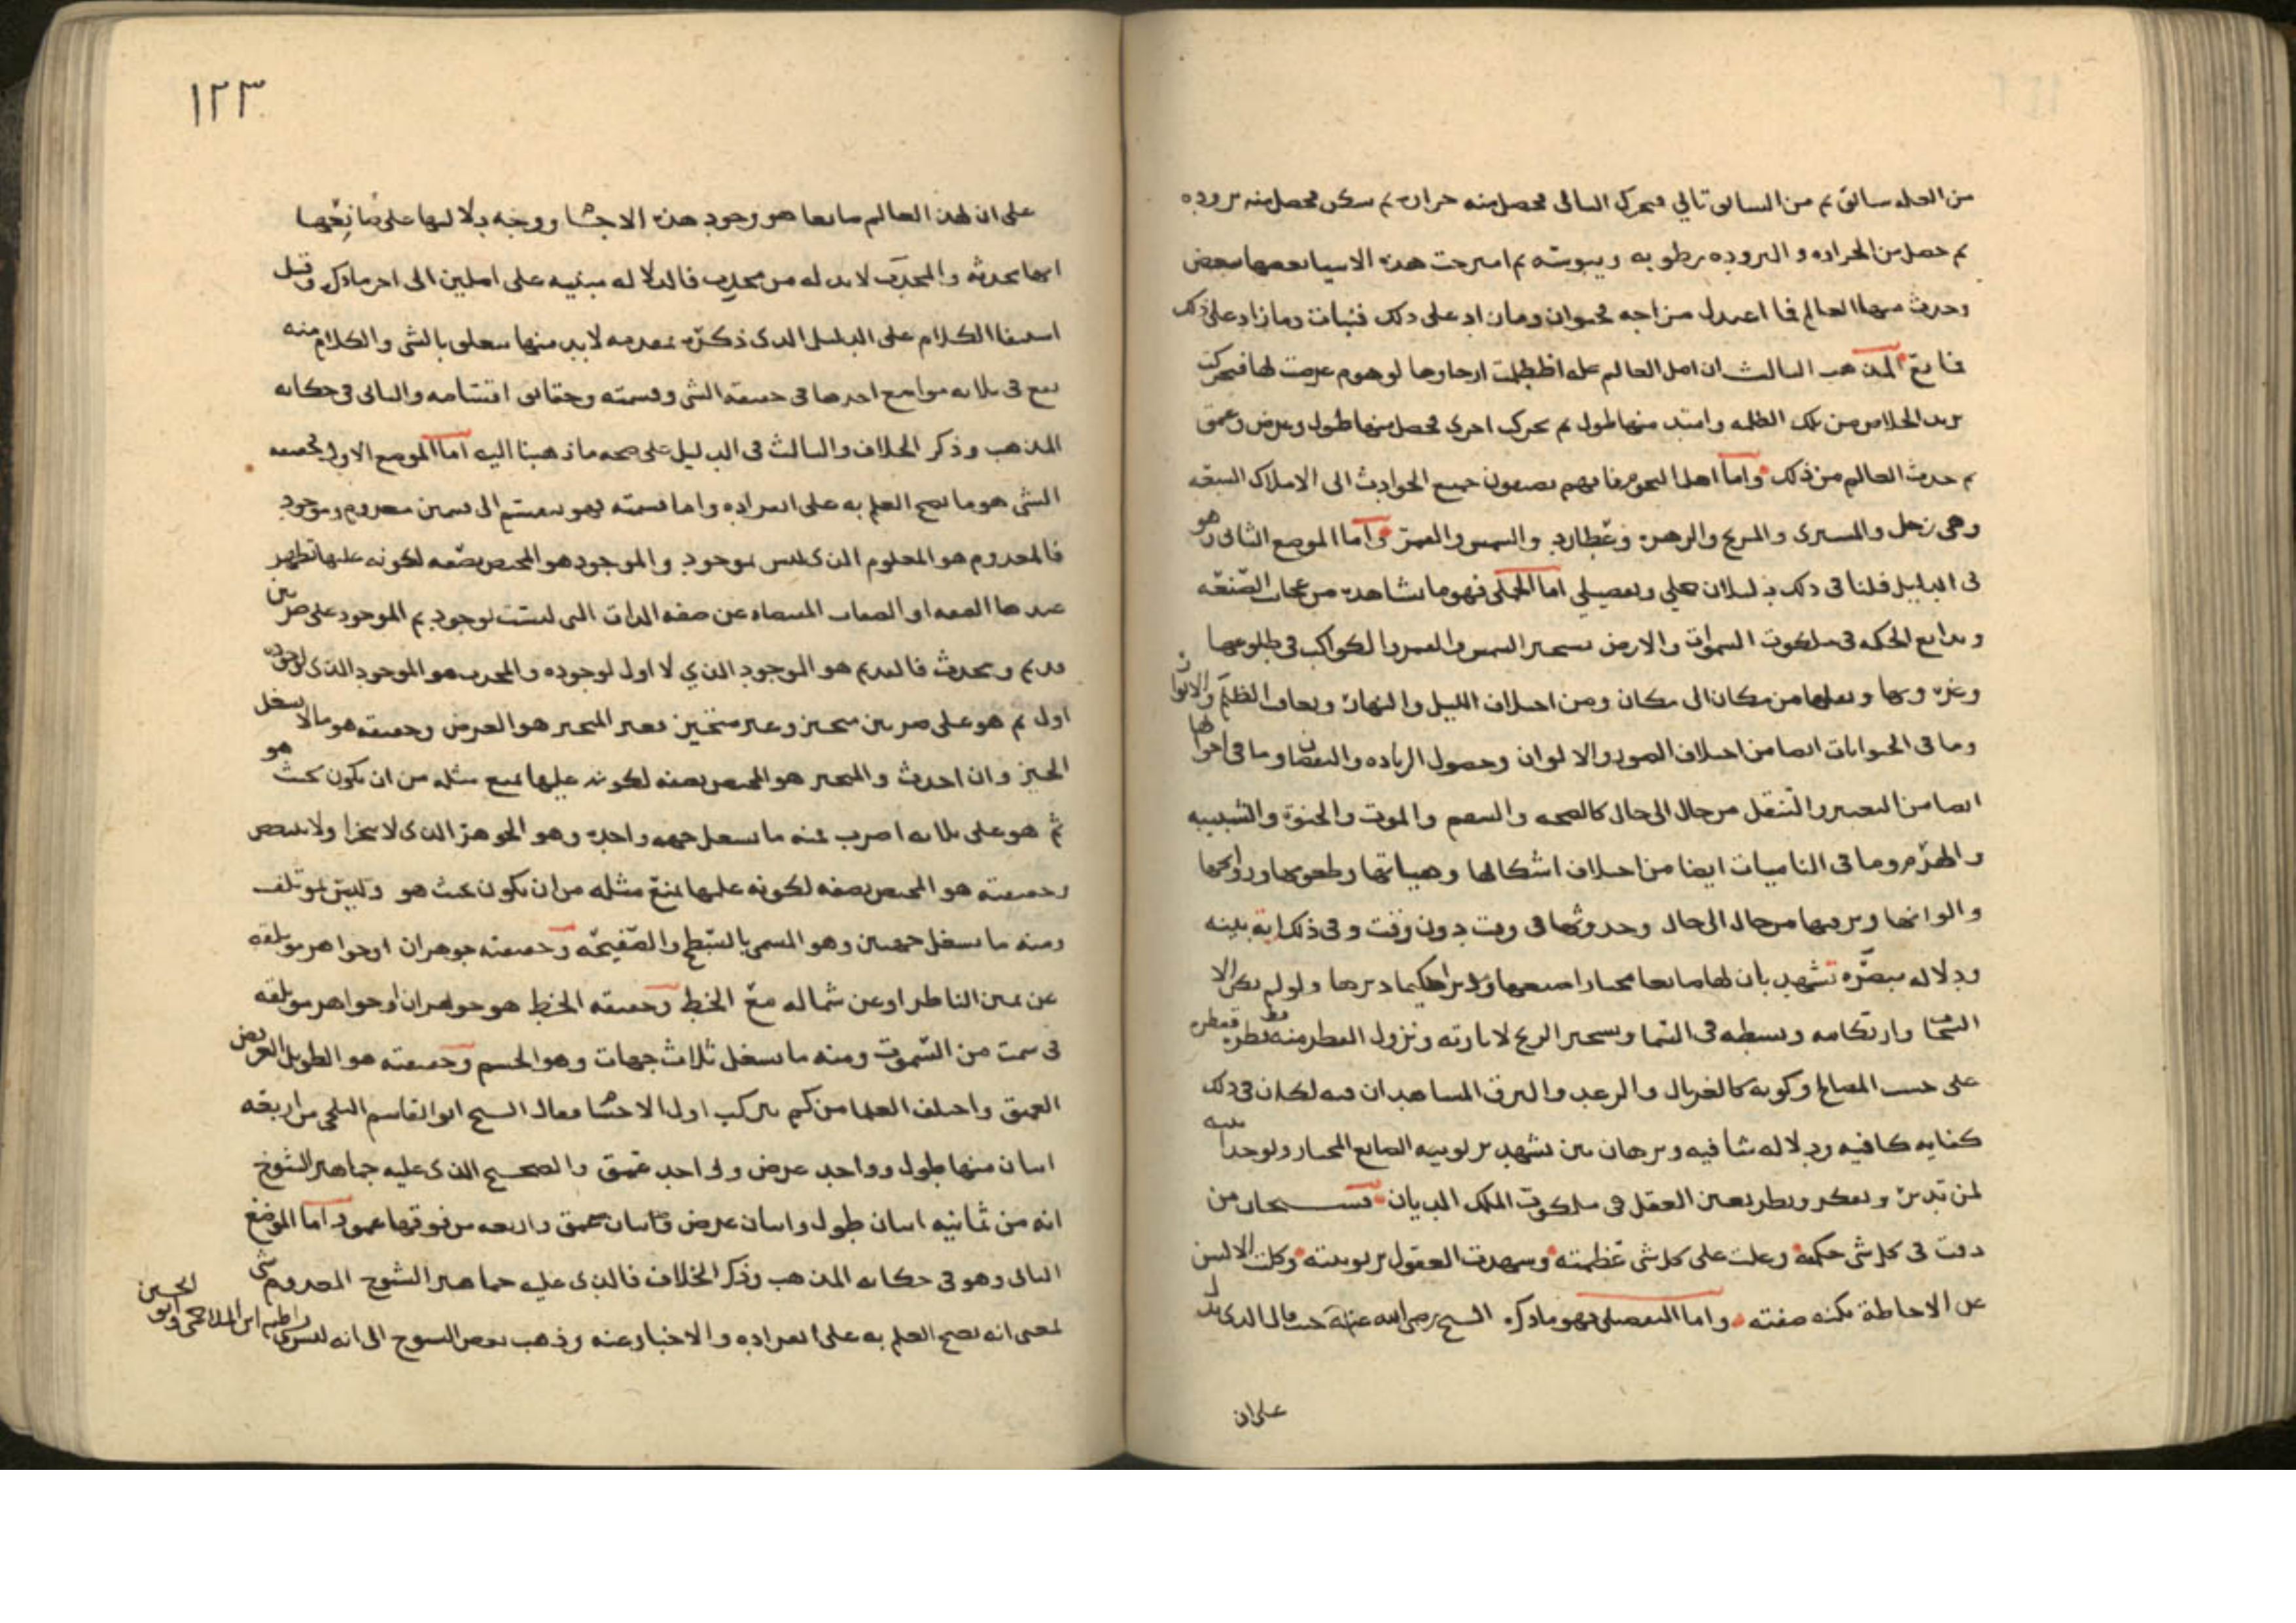 من العله سابق ثم من السابق تالي فتحرك التالى فحصل منه حراره ثم سكن فحصل منه بروده
ثم حصل من الحراره والبروده رطوبه ويبوسه ثم امتزجت هذه الاشيا بعضها ببعض
وحدث منها العالم فما اعتدل مزاجه فحيوان وما زاد على ذلك فنبات وما زاد على ذلك
المذهب الثالث ان اصل العالم عله لهموم عرضت لها فتحركت
تريد الخلاص من تلك الظلمه وامتد منها طول ثم تحرك اخرى فحصل منها طول وعرض وعمق
ثم حدث العالم من ذلك واما اهل النجوم فانهم يضيفون جميع الحوادث الى الافلاك السبعه
وهي زحل والمشترى والمريخ والزهره وعطارد والشمس والقمر واما الموضع الثانى وهو
فى الدليل فلنا فى ذلك دليلان جملي وتفصيلي اما الجملى فهو ما نشاهده من عجائب الصنعه
وبدايع الحكمه فى ملكوت السموات والارض بتسخير الشمس والقمر والكواكب فى طلوعها
وغروبها وتنقلها من مكان الى مكان ومن اختلاف الليل والنهار وتعاقب الظلم والانوار
وما فى الحيوانات ايضا من اختلاف الصور والالوان وحصول الزياده والنقصان وما فى احوالها
ايضا من التغيير والتنقل من حال الى حال كالصحه والسقم والموت والحيوة والشبيبه
والهرم وما فى الناميات ايضا من اختلاف اشكالها وهيياتها وطعومها وروايحها
والوانها وترتيبها من حال الى حال وحدوثها فى وقت دون وقت وفى ذلك اية بينه
ودلاله مبصره تشهد بان لها صانعا مختارا صنعها ومدبرا حكيما دبرها ولو لم يكن الا
السحاب وارتكامه وبسطه فى السما وتسخير الريح لاثارته ونزول القطر منه قطره قطره
على حسب المصالح وكونه كالغربال والرعد والبرق المشاهدان فيه لكان فى ذلك
كفايه كافيه ودلاله شافيه وبرهان بين تشهد بربوبيه الصانع المختار ولوحدانيته
لمن تدبر وتفكر ونظر بعين العقل فى ملكوت الملك الديان فسبحان من
دقت فى كل شى حكمه وعلت على كل شى عظمته وشهدت العقول بربوبيته وكلت الالسن
عن الاحاطة بكنه صفته واما التفصيلى فهو ما ذكره الشيخ رضى الله عنه حيث قال الذى يدل
على ان
١٢٣
على ان لهذا العالم صانعا هو وجود هذه الاجسام ووجه دلالتها على صانعها
انها محدثه والمحدث لا بد له من محدث فالدلاله مبنيه على اصلين الى اخر ما ذكره وقبل
استيفا الكلام على الدليل الذى ذكره مقدمه لا بد منها تتعلق بالشى والكلام منه
يقع فى ثلاثه مواضع احدها فى حقيقه الشى وقسمته وحقايق اقسامه والثانى فى حكايه
المذهب وذكر الخلاف والثالث فى الدليل على صحه ما ذهبنا اليه اما الموضع الاول فحقيقه
الشى هو ما يصح العلم به على انفراده واما قسمته فهو ينقسم الى قسمين معدوم وموجود
فالمعدوم هو المعلوم الذى ليس بموجود والموجود هو المختص بصفه لكونه عليها تظهر
عندها الصفه او الصفات المقتضاه عن صفه الذات التى ليست بوجود ثم الموجود على ضربين
قديم ومحدث فالقديم هو الموجود الذي لا اول لوجوده والمحدث هو الموجود الذى لوجوده
اول ثم هو على ضربين متحيز وغير متحيز فغير المتحيز هو العرض وحقيقته هو ما لا يشغل
الحيز وان احدث والمتحيز هو المختص بصفه لكونه عليها يمنع مثله من ان يكون بحيث هو
ثم هو على ثلاثه اضرب منه ما يشغل جهه واحده وهو الجوهر الذى لا يتجزا ولا يتبعض
وحقيقته هو المختص بصفه لكونه عليها يمنع مثله من ان يكون بحيث هو وليس بموتلف
ومنه ما يشغل جهتين وهو المسمى بالسطح والصفيحه وحقيقته جوهران او جواهر موتلفه
عن يمين الناظر او عن شماله مع الخط وحقيقه الخط هو جوهران او جواهر موتلفه
فى سمت من السموت ومنه ما يشغل ثلاث جهات وهو الجسم وحقيقته هو الطويل العريض
العميق واختلف العلما من كم يتركب اول الاجسام فقال الشيخ ابو القاسم البلخي من اربعه
اثنان منها طول وواحد عرض وواحد عمق والصحيح الذى عليه جماهير الشيوخ
انه من ثمانيه اثنان طول واثنان عرض واثنان عمق واربعه من فوقها عمق واما الموضع
الثانى وهو فى حكايه المذهب وذكر الخلاف فالذى عليه جماهير الشيوخ المعدوم شى
بمعنى انه يصح العلم به على انفراده والاخبار عنه وذهب بعض الشيوخ الى انه ليس بشى
ابن الملاحمى وابو الحسين